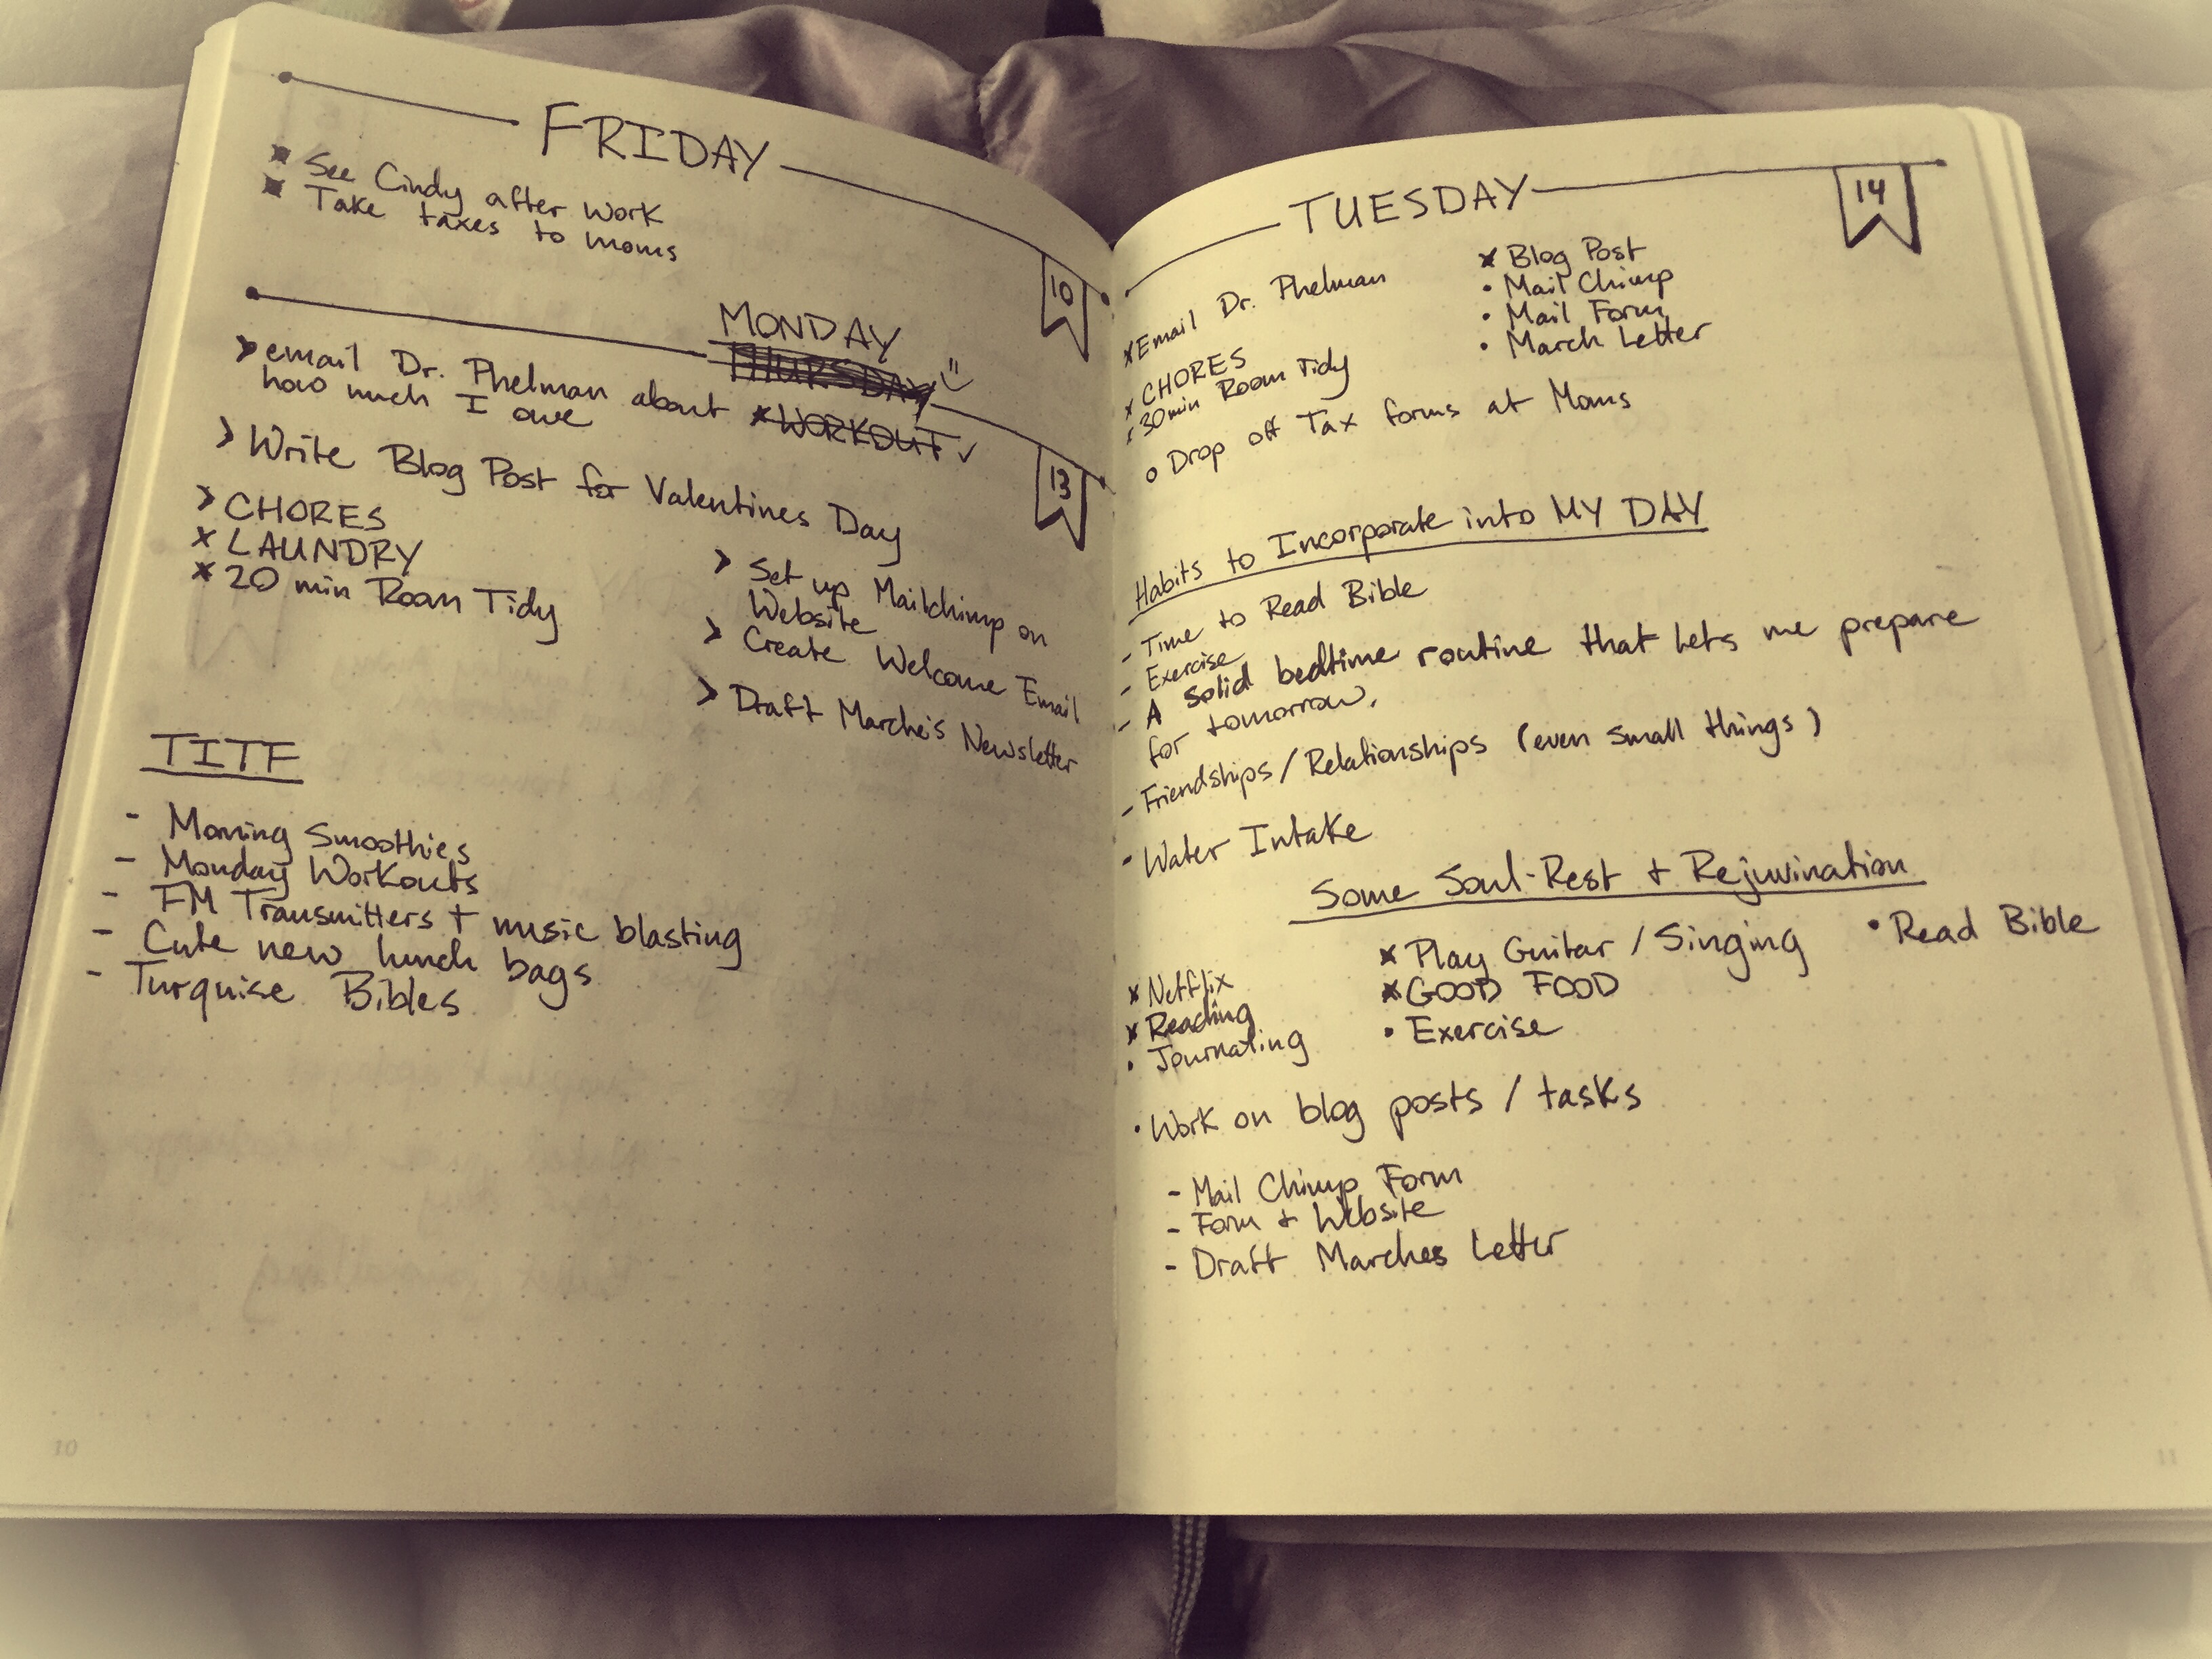 FRIDAY
See Cindy after work
Take taxes to moms
10
MONDAY
THURSDAY
email Dr. Phelman about
how much I owe
WORKOUT ✓
13
> Write Blog Post for Valentines Day
> CHORES
x LAUNDRY
x 20 min Room Tidy
> Set up Mailchimp on
Website
> Create Welcome Email
> Draft Marche's Newsletter
TITF
- Morning Smoothies
- Monday Workouts
- FM Transmitters + music blasting
- Cute new lunch bags
- Turquise Bibles
10
TUESDAY
14
x Email Dr. Phelman
x CHORES
x 30min Room Tidy
o Drop off Tax forms at Moms
x Blog Post
• Mail Chimp
• Mail Form
• March Letter
Habits to Incorporate into MY DAY
- Time to Read Bible
- Exercise
- A solid bedtime routine that lets me prepare
for tomorrow.
- Friendships/Relationships (even small things)
- Water Intake
Some Soul-Rest + Rejuvination
x Netflix
x Reading
• Journaling
x Play Guitar / Singing
x GOOD FOOD
• Exercise
• Read Bible
• Work on blog posts / tasks
- Mail Chimp Form
- Form + Website
- Draft Marches Letter
11